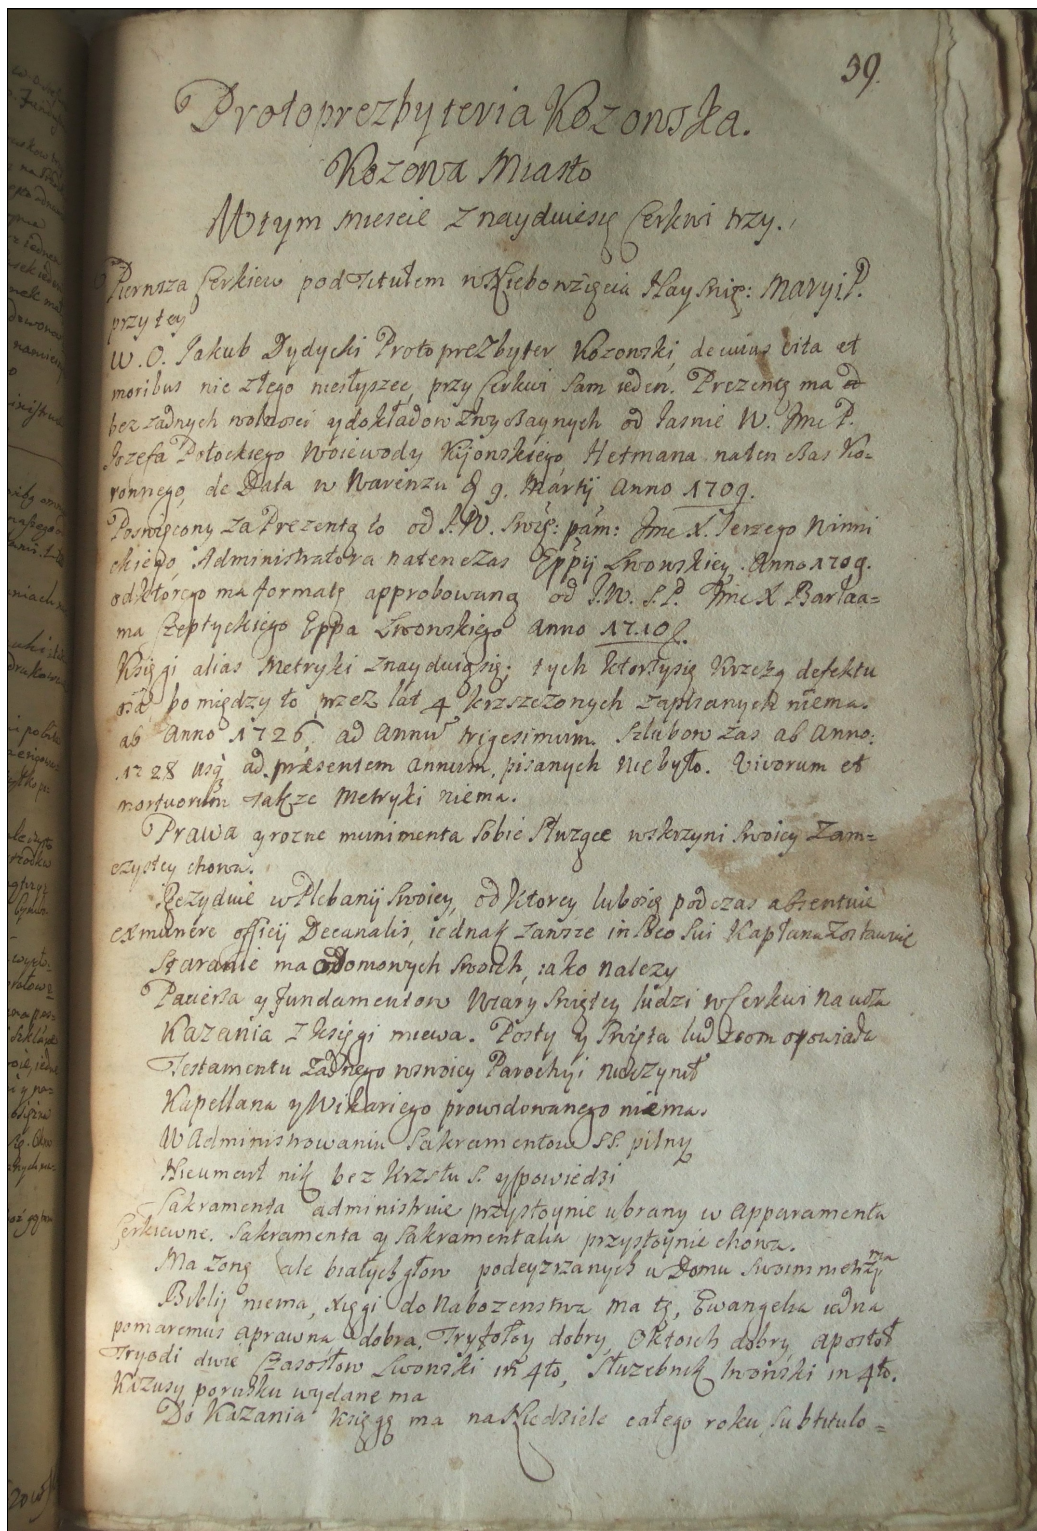 39.
Protoprezbyteria Kozowska.
Kozowa Miasto
W tym miescie znayduiesię Cerkwi trzy.
Pierwsza Cerkiew pod Tytułem wNiebowzięcia Nay Swię: Maryi P.
przy tey
W. O. Jakub Dydycki Protoprezbyter Kozowski, de cuius vita et
moribus nic złego niesłyszeć, przy Cerkwi sam ieden. Prezentę ma
bez zadnych wolnosci y dokładow zwyczaynych od Jasnie W. Jmc P.
Jozefa Potockiego Woiewody Kijowskiego, Hetmana naten czas Ko-
ronnego, de Data w Warenzu 9. Martij Anno 1709.
Poswięcony za Prezentą to od J.W. Swię: pám: Jmc X. Jerzego Winni
ckiego, Administratora natenczas Eppij Lwowskiey. Anno 1709.
od ktorego ma formatę approbowaną od J.W. S.P. Jmc X Barłaa-
ma Szeptyckiego Eppa Lwowskiego Anno 1710.
Księgi alias Metryki znayduią się; tych ktorzysię krzczą defektu
pomiędzy to przez lat 4 krzszczonych zapisanych niema.
ab Anno 1726, ad Annũ trigesimum. Szlubow zas ab Anno:
1728 usq ad præsentem annum, pisanych niebyło. Vivorum et
mortuorum takze Metryki niema.
Prawa y rozne munimenta sobie słuzące wskrzyni swoiey zam-
czystey chowa.
Rezyduie w Plebanij swoiey, od ktorey lubosię podczas absentuie
ex munere officij Decanalis, iednak zawsze in loco sui Kapłana zostawuie
Staranie ma o domowych swoich, iako nalezy
Pacierza y fundamentow Wiary Swiętey ludzi w Cerkwi naucza
Kazania z księgi miewa. Posty y Swięta ludziom opowiada
Testamentu zadnego wswoiey Parochyi nieczynił
Kapellana y Wikariego prowidowanego niema.
W Administrowaniu Sakramentow SS. pilny
Nieumarł nik bez krzstu S. y spowiedzi
Sakramenta administruie przystoynie ubrany w apparamenta
Cerkiewne. Sakramenta y Sakramentalia przystoynie chowa.
Ma zonę ale białychgłow podeyzrzanych w Domu swoim nietrzyma
Biblij niema, xięgi do nabozenstwa ma tę, Ewangelia iedna
pomaremus aprawna dobra, Tryfołoy dobry, Oktoich dobry, apostoł
Tryodi dwie Czasosłow Lwowski in 4to, Słuzebnik lwowski in 4to.
Kazusy porusku wydane ma
Do Kazania księgę ma na Niedziele całego roku sub titulo=